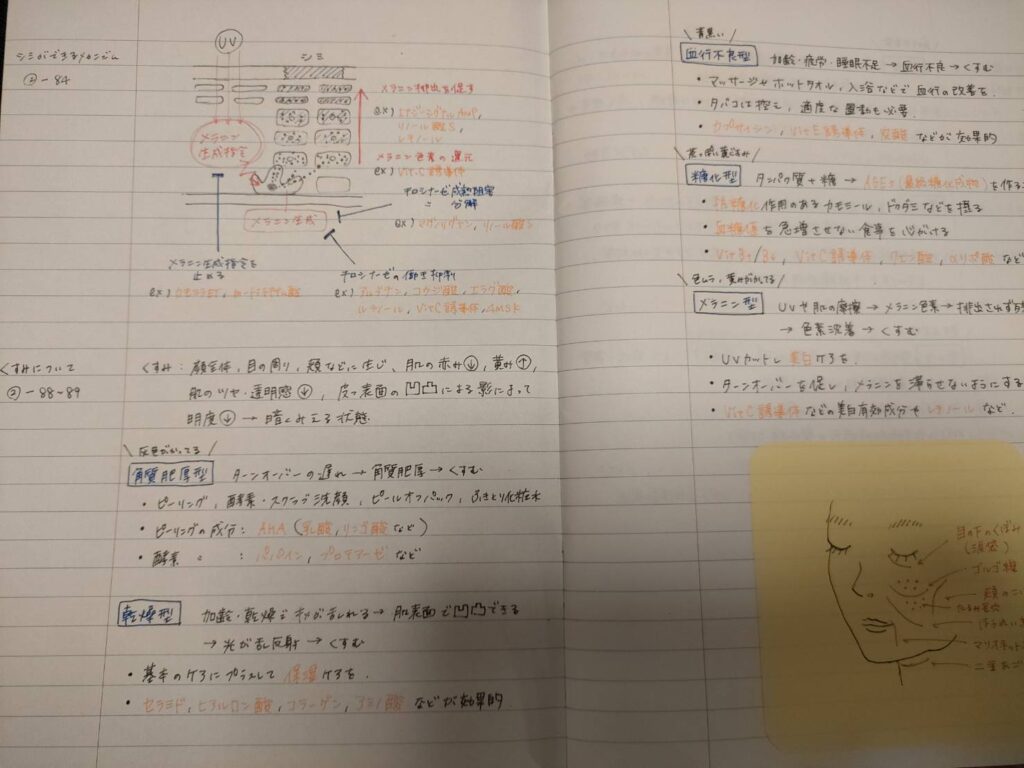 シミができるメカニズム
②-84
UV
シミ
メラニン排出を促す
ex) エナジーシグナルAMP,
リノール酸S
レチノール
メラニン
生成指定
メラニン色素の還元
ex) VitC誘導体
チロシナーゼ成熟阻害
分解
メラニン生成
ex) マグノリグナン, リノール酸S
メラニン生成指定を
止める
ex) カモミラET, トラネキサム酸
チロシナーゼの働き抑制
ex) アルブチン, コウジ酸, エラグ酸,
ルシノール, VitC誘導体, 4MSK
くすみについて
②-88~89
くすみ: 顔全体, 目の周り, 頬などに生じ, 肌の赤み↓, 黄み↑,
肌のツヤ・透明感↓, 皮フ表面の凹凸による影によって
明度↓→暗くみえる状態
\ 灰色がかってる /
角質肥厚型 ターンオーバーの遅れ→角質肥厚→くすむ
・ピーリング, 酵素・スクラブ洗顔, ピールオフパック, ふきとり化粧水
・ピーリングの成分: AHA (乳酸, リンゴ酸など)
・酵素 〃 : パパイン, プロテアーゼなど
乾燥型 加齢・乾燥でキメが乱れる→肌表面で凹凸できる
→光が乱反射→くすむ
・基本のケアにプラスして保湿ケアを.
・セラミド, ヒアルロン酸, コラーゲン, アミノ酸などが効果的
\ 青黒い /
血行不良型 加齢・疲労・睡眠不足→血行不良→くすむ
・マッサージやホットタオル, 入浴などで血行の改善を.
・タバコは控え, 適度な運動も必要.
・カプサイシン, VitE誘導体, 炭酸などが効果的
糖化型 タンパク質+糖→AGEs(最終糖化産物)を作る
・抗糖化作用のあるカモミール, ドクダミなどを摂る
・血糖値を急増させない食事を心がける
・VitB1/B6, VitC誘導体, クエン酸, αリポ酸など
\ 色ムラ, 黄みがかってる /
メラニン型 UVや肌の摩擦→メラニン色素→排出されず
→色素沈着→くすむ
・UVカットし美白ケアを
・ターンオーバーを促し, メラニンを滞らせないようにする
・VitC誘導体などの美白有効成分やレチノールなど.
目の下のくぼみ
(涙袋)
ゴルゴ線
頬の
たるみ毛穴
ほうれい
マリオネット
二重あご